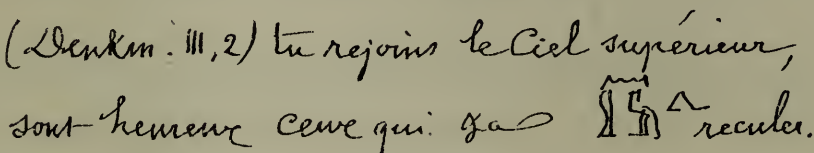 (Denkm. III, 2) tu rejoins le Ciel supérieur,
sont heureux ceux qui reculer.